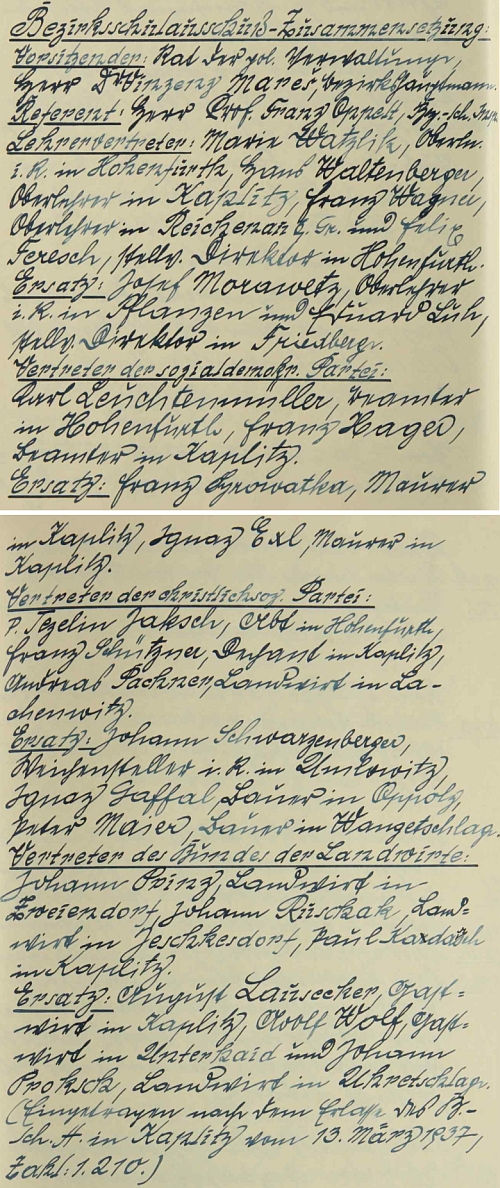 Bezirksschulausschuß-Zusammensetzung:
Vorsitzender: Rat der pol. Verwaltung,
Herr Dr Vinzenz Mareš, Bezirkshauptmann.
Referent: Herr Prof. Franz Oppelt, Bez.-sch. Insp.
Lehrervertreter: Marie Watzlik, Oberln.
i. R. in Hohenfurth, Hans Waltenberger,
Oberlehrer in Kaplitz, Franz Wagner,
Oberlehrer in Reichenau a. Gr. und Felix
Feresch, stellv. Direktor in Hohenfurth.
Ersatz: Josef Morawetz, Oberlehrer
i. R. in Pflanzen und Eduard Lüh,
stellv. Direktor in Friedberg.
Vertreter der sozialdemokr. Partei:
Karl Leuchtenmüller, Beamter
in Hohenfurth, Franz Hager,
Beamter in Kaplitz.
Ersatz: Franz Hrowatka, Maurer
in Kaplitz, Ignaz Exl, Maurer in
Kaplitz.
Vertreter der christlichsoz. Partei:
P. Tezelin Jaksch, Abt in Hohenfurth,
Franz Schützner, Dechant in Kaplitz,
Andreas Pachner, Landwirt in La-
chenwitz.
Ersatz: Johann Schwarzenberger,
Weichensteller i. R. in Umlowitz,
Ignaz Gaffal, Bauer in Oppolz,
Peter Maier, Bauer in Wangetschlag.
Vertreter des Bundes der Landwirte:
Johann Prinz, Landwirt in
Zweiendorf, Johann Ruschak, Land=
wirt in Jeschkesdorf, Paul Kardasch
in Kaplitz.
Ersatz: August Lausecker, Gast=
wirt in Kaplitz, Adolf Wolf, Gast=
wirt in Unterhaid und Johann
Proksch, Landwirt in Uhretschlag.
(Eingetragen nach dem Erlasse des B.-
sch. A. in Kaplitz vom 13. März 1937,
Zahl: 1.210.)